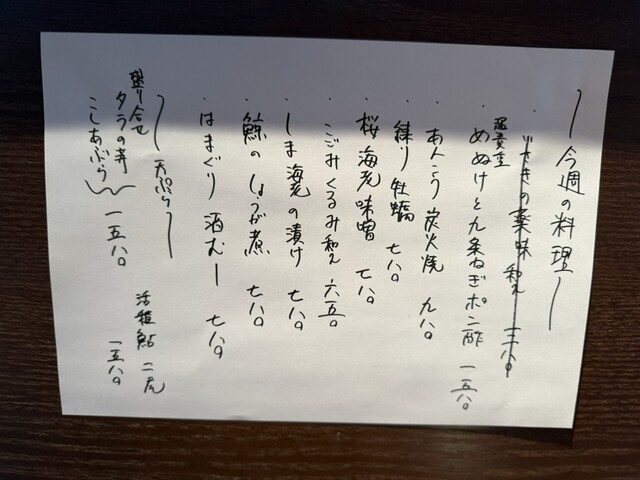 今週の料理
・いさきの薬味和え 三八〇
超貴重
・めぬけと九条ねぎポン酢 一五八〇
・あんこう炭火焼 九八〇
・練り牡蠣 七八〇
・桜海老味噌 七八〇
・こごみくるみ和え 六五〇
・しま海老の漬け 七八〇
・鯨のしょうが煮 七八〇
・はまぐり酒むし 七八〇
天ぷら
盛り合せ
タラの芽
こしあぶら
一五八〇
活稚鮎 二尾
一五八〇